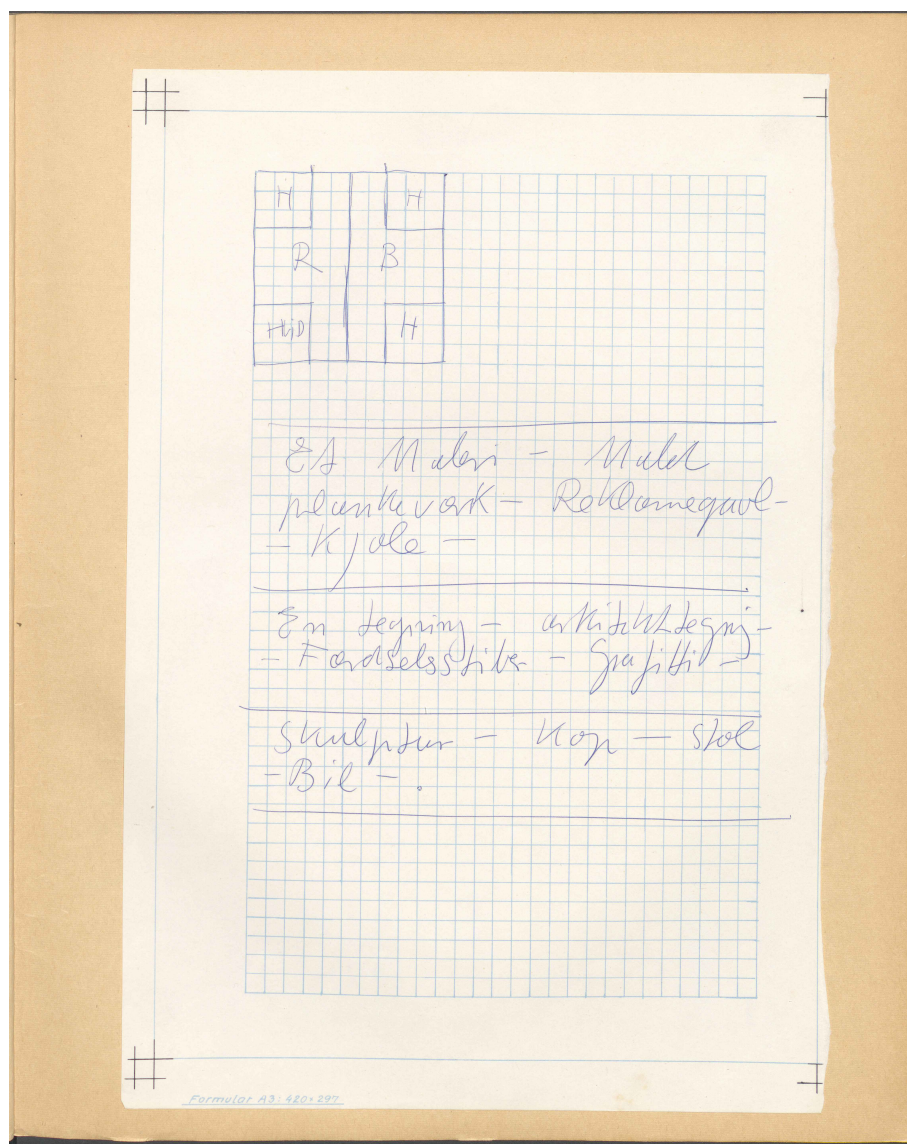 H H
R B
Hvid H
Et Maleri - Malet
plankeværk - Reklamegavl -
- Kjole -
En tegning - arkitekttegnig -
- Færdselsstiber - Grafitti -
Skulptur - Kop - Stol
- Bil - .
Formular A3: 420×297